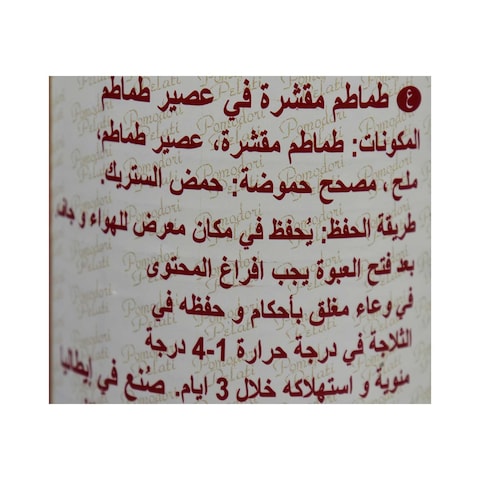 ع طماطم مقشرة في عصير طماطم
المكونات: طماطم مقشرة، عصير طماطم،
ملح، مصحح حموضة: حمض الستريك.
طريقة الحفظ: يحفظ في مكان معرض للهواء و جاف
بعد فتح العبوة يجب افراغ المحتوى
في وعاء مغلق بأحكام و حفظه في
الثلاجة في درجة حرارة 1-4 درجة
منوية و استهلاكه خلال 3 ايام. صُنع في إيطاليا
Pomodori
Pelati